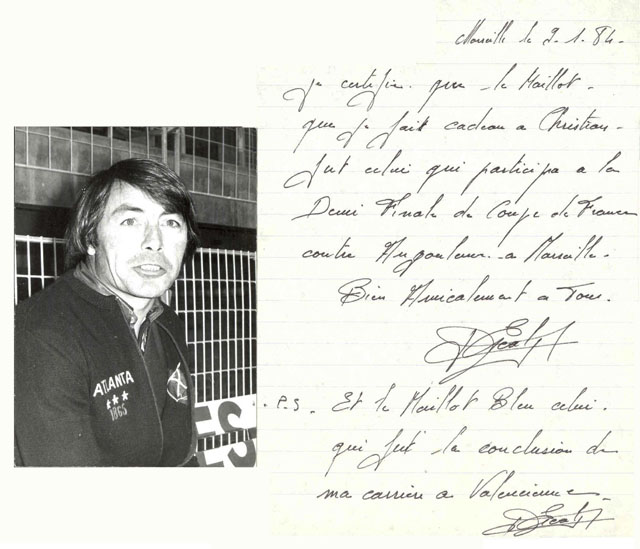 Marseille le 2.1.84.
je certifie que le Maillot
que je fait cadeau a Christian
fut celui qui participa a la
Demi Finale de Coupe de France
contre Angouleme a Marseille.
Bien Amicalement a Tous.
P.S. Et le Maillot Bleu celui
qui fut la conclusion de
ma carriere a Valenciennes
ATLANTA
1865
ES
ES